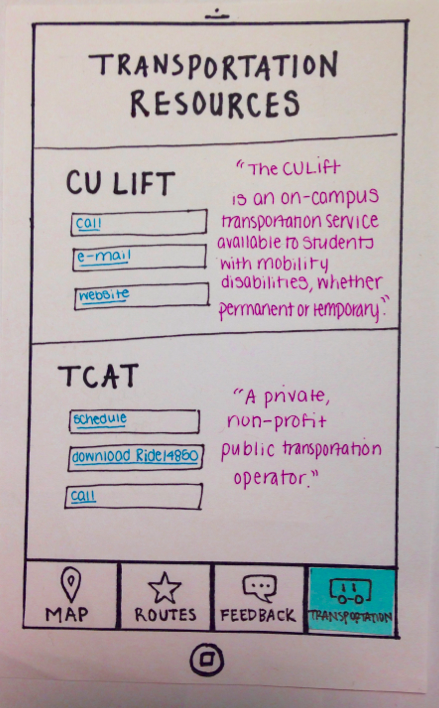 TRANSPORTATION
RESOURCES
CU LIFT
call
e-mail
website
"The CULift
is an on-campus
transportation service
available to students
with mobility
disabilities, whether
permanent or temporary."
TCAT
schedule
download Ride14850
call
"A private,
non-profit
public transportation
operator."
MAP
ROUTES
FEEDBACK
TRANSPORTATION